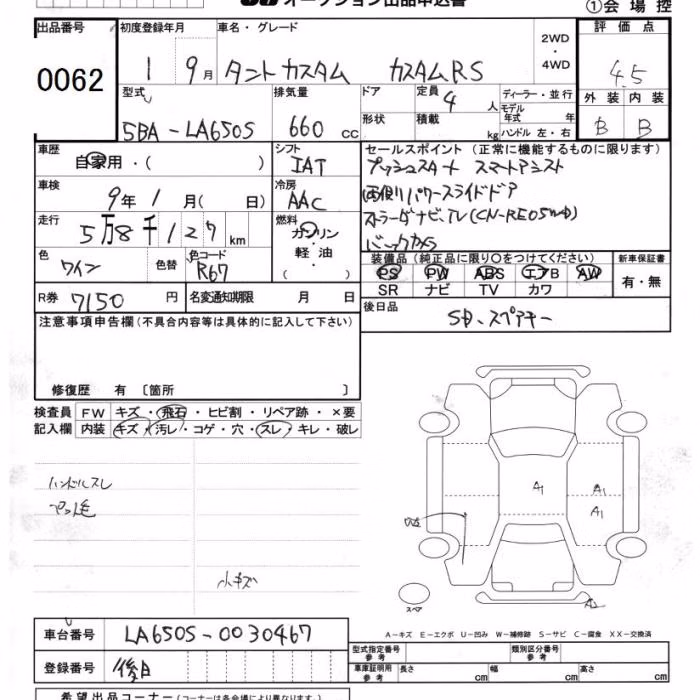 オークション出品申込書
①会場控
出品番号 初度登録年月 車名・グレード 2WD・4WD 評価点
0062 1 9月 タントカスタム カスタムRS 4.5
型式 排気量 ドア 定員 4人 ディーラー・並行 外装 内装
5BA-LA650S 660cc 形状 積載 kg モデル年式 年 ハンドル 左・右 B B
車歴 自家用・( ) シフト IAT セールスポイント(正常に機能するものに限ります)
プッシュスタート スマートアシスト
車検 9年1月( 日) 冷房 AAC 両側パワースライドドア
走行 5万8千127km 燃料 ガソリン・軽油・( ) バックカメラ
色 ワイン 色替 色コード R67 装備品(純正品に限り〇をつけてください) 新車保証書
PS PW ABS エアB AW 有・無
SR ナビ TV カワ
R券 7150円 名変通知期限 月 日 後日品
SD、スペアキー
注意事項申告欄(不具合内容等は具体的に記入して下さい)
修復歴 有〔箇所 〕
検査員 FW キズ・飛石・ヒビ割・リペア跡・×要
記入欄 内装 キズ・汚レ・コゲ・穴・スレ・キレ・破レ
ハンドルスレ
ペット毛
小キズ
A1 A1
A1
A2
スペア
車台番号 LA650S-0030467
A-キズ E-エクボ U-凹み W-補修跡 S-サビ C-腐食 XX-交換済
登録番号 後日
型式指定番号 参考 類別区分番号 参考
車庫証明用 参考 長さ cm 幅 cm 高さ cm
希望出品コーナー(コーナーは各会場により異なります。)